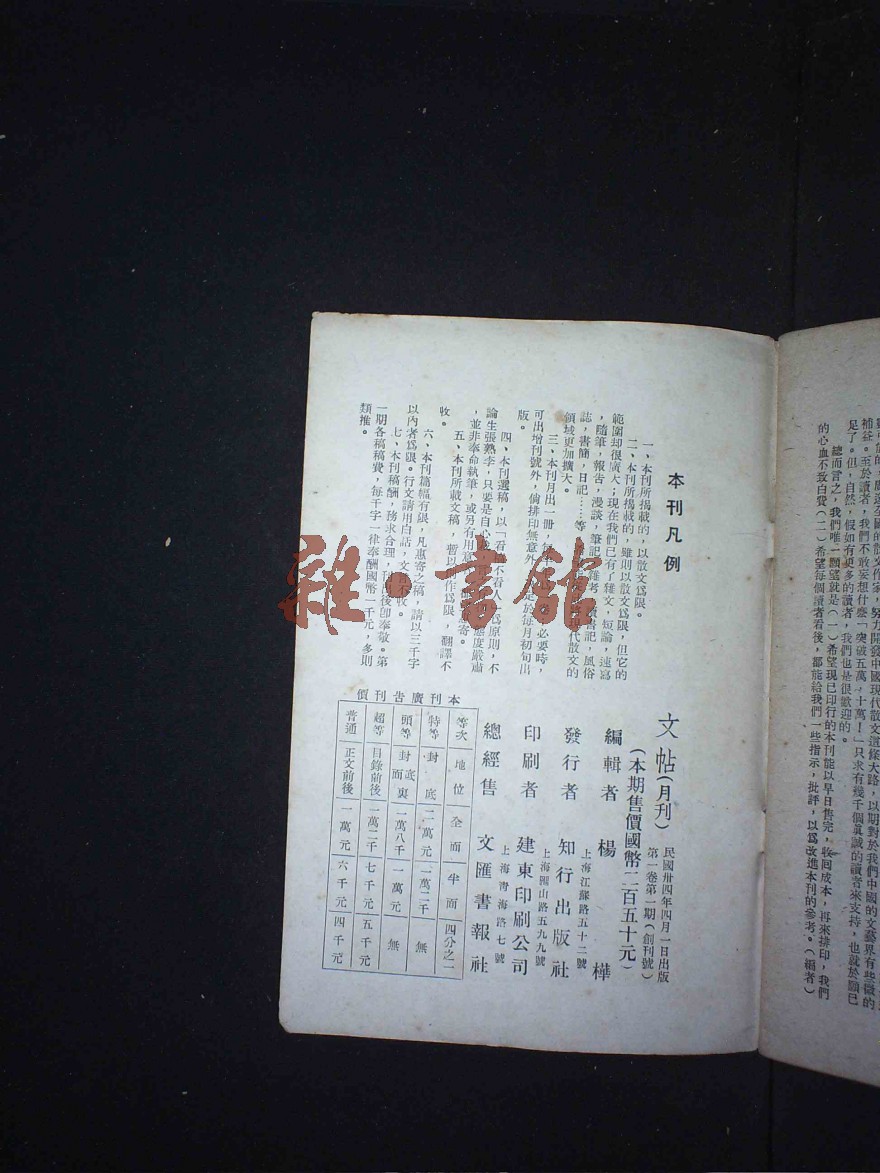 數可能的，
補益。至於讀者，我們不敢妄想什麼「突破五萬，十萬！」只求有幾千個真誠的讀者來支持，也就於願已
足了。但，自然，假如有更多的讀者，我們也是很歡迎的。
總而言之，我們唯一願望就是（一）希望現已印行的本刊能以早日售完，收回成本，再來排印，我們
的心血不致白費（二）希望每個讀者看後，都能給我們一些指示，批評，以爲改進本刊的參考。（編者）
本刊凡例
一、本刊所揭載的，以散文爲限。
二、本刊所揭載的，雖則以散文爲限，但它的
範圍却很廣大；現在我們已有了雜文，短論，速寫
，隨筆，報告，漫談，筆記，雜考，書記，風俗
誌，書簡，日記……等，現代散文的
領域更加擴大。
三、本刊月出一冊，必要時，
可出增刊號外，倘排印無意外，於每月初旬出
版。
四、本刊選稿，以「看稿不看人」爲原則，不
論生張熟李，只要是自心態度嚴肅
，並非奉命執筆，或另有用寄。
五、本刊所載文稿，暫以創作爲限，翻譯不
收。
六、本刊篇幅有限，凡惠寄之稿，請以三千字
以內者爲限。行文請用白話，文言不收。
七、本刊稿酬，務求合理，刊後卽奉敬。第
一期各稿稿費，每千字一律奉酬國幣一千元，多則
類推。
文帖（月刊）
民國卅四年四月一日出版
第一卷第一期（創刊號）
（本期售價國幣二百五十元）
編輯者 楊樺
發行者 知行出版社
上海江蘇路五十二號
印刷者 建東印刷公司
上海園山路五九九號
總經售 文匯書報社
上海青海路七號
本刊廣告刊價
等次 地位 全面 半面 四分之一
特等 封底 二萬元 一萬二千 無
頭等 封面底裏 一萬八千 一萬元 無
超等 目錄前後 一萬二千 七千元 五千元
普通 正文前後 一萬元 六千元 四千元
雜·書館